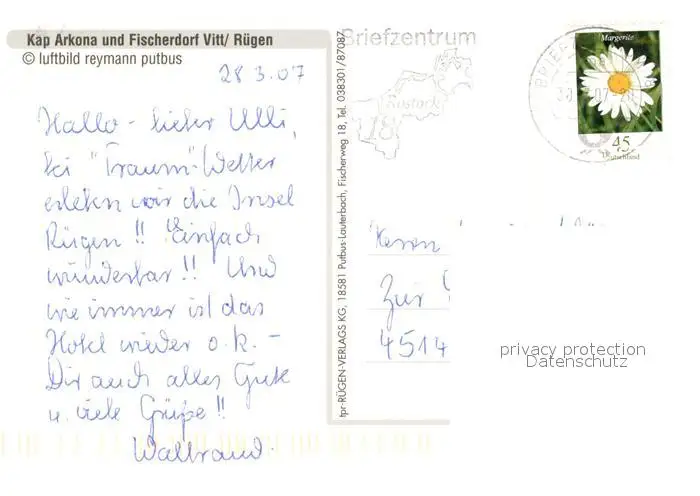 Kap Arkona und Fischerdorf Vitt/ Rügen
© luftbild reymann putbus
28 3.07
Hallo - lieber Ulli,
bei "Traum"-Wetter
erleben wir die Insel
Rügen !! Einfach
wunderbar !! Und
wie immer ist das
Hotel wieder o.k. -
Dir auch alles Gute
u. viele Grüße !!
Waltraud.
tpr-RÜGEN-VERLAGS KG, 18581 Putbus-Lauterbach, Fischerweg 18, Tel. 038301/87087
Briefzentrum
Rostock
18
BRIEF
Margerite
45
Deutschland
Herrn
Zur
4514
privacy protection
Datenschutz